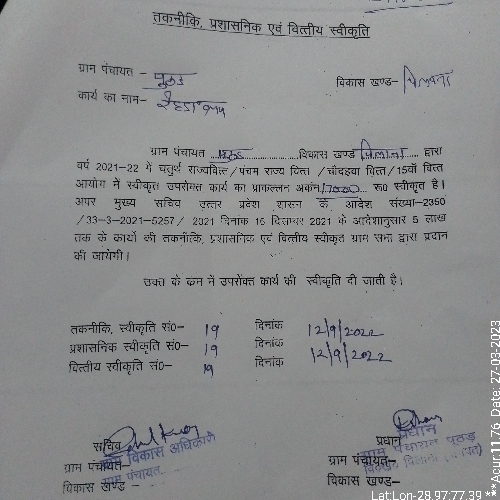 तकनीकि, प्रशासनिक एवं वित्तीय स्वीकृति
ग्राम पंचायत – पूठड
विकास खण्ड– पिलाना
कार्य का नाम–
ग्राम पंचायत पूठड विकास खण्ड पिलाना द्वारा
वर्ष 2021–22 में चतुर्थ राज्यवित्त / पंचम राज्य वित्त / चौदहवा वित्त / 15वॉ वित्त
आयोग में स्वीकृत उपरोक्त कार्य का प्राक्कलन अकंन रू0 स्वीकृत है।
अपर मुख्य सचिव उत्तर प्रदेश शासन के आदेश संख्या–2350
/33–3–2021–5257/ 2021 दिनांक 16 दिसम्बर 2021 के आदेशानुसार 5 लाख
तक के कार्यो की तकनीकि, प्रशासनिक एवं वित्तीय स्वीकृत ग्राम सभा द्वारा प्रदान
की जायेगी।
उक्त के कम में उपरोक्त कार्य की स्वीकृति दी जाती है।
तकनीकि, स्वीकृति सं0– 19 दिनांक 12/9/2022
प्रशासनिक स्वीकृति सं0– 19 दिनांक 12/9/2022
वित्तीय स्वीकृति सं0– 19
सचिव
ग्राम विकास अधिकारी
ग्राम पंचायत–
ग्राम पंचायत
विकास खण्ड –
प्रधान
प्रधान
ग्राम पंचायत–
ग्राम पंचायत पूठड
विकास खण्ड –
Lat Lon-28.97:77.39
Accur:11.76 Date: 27-03-2023